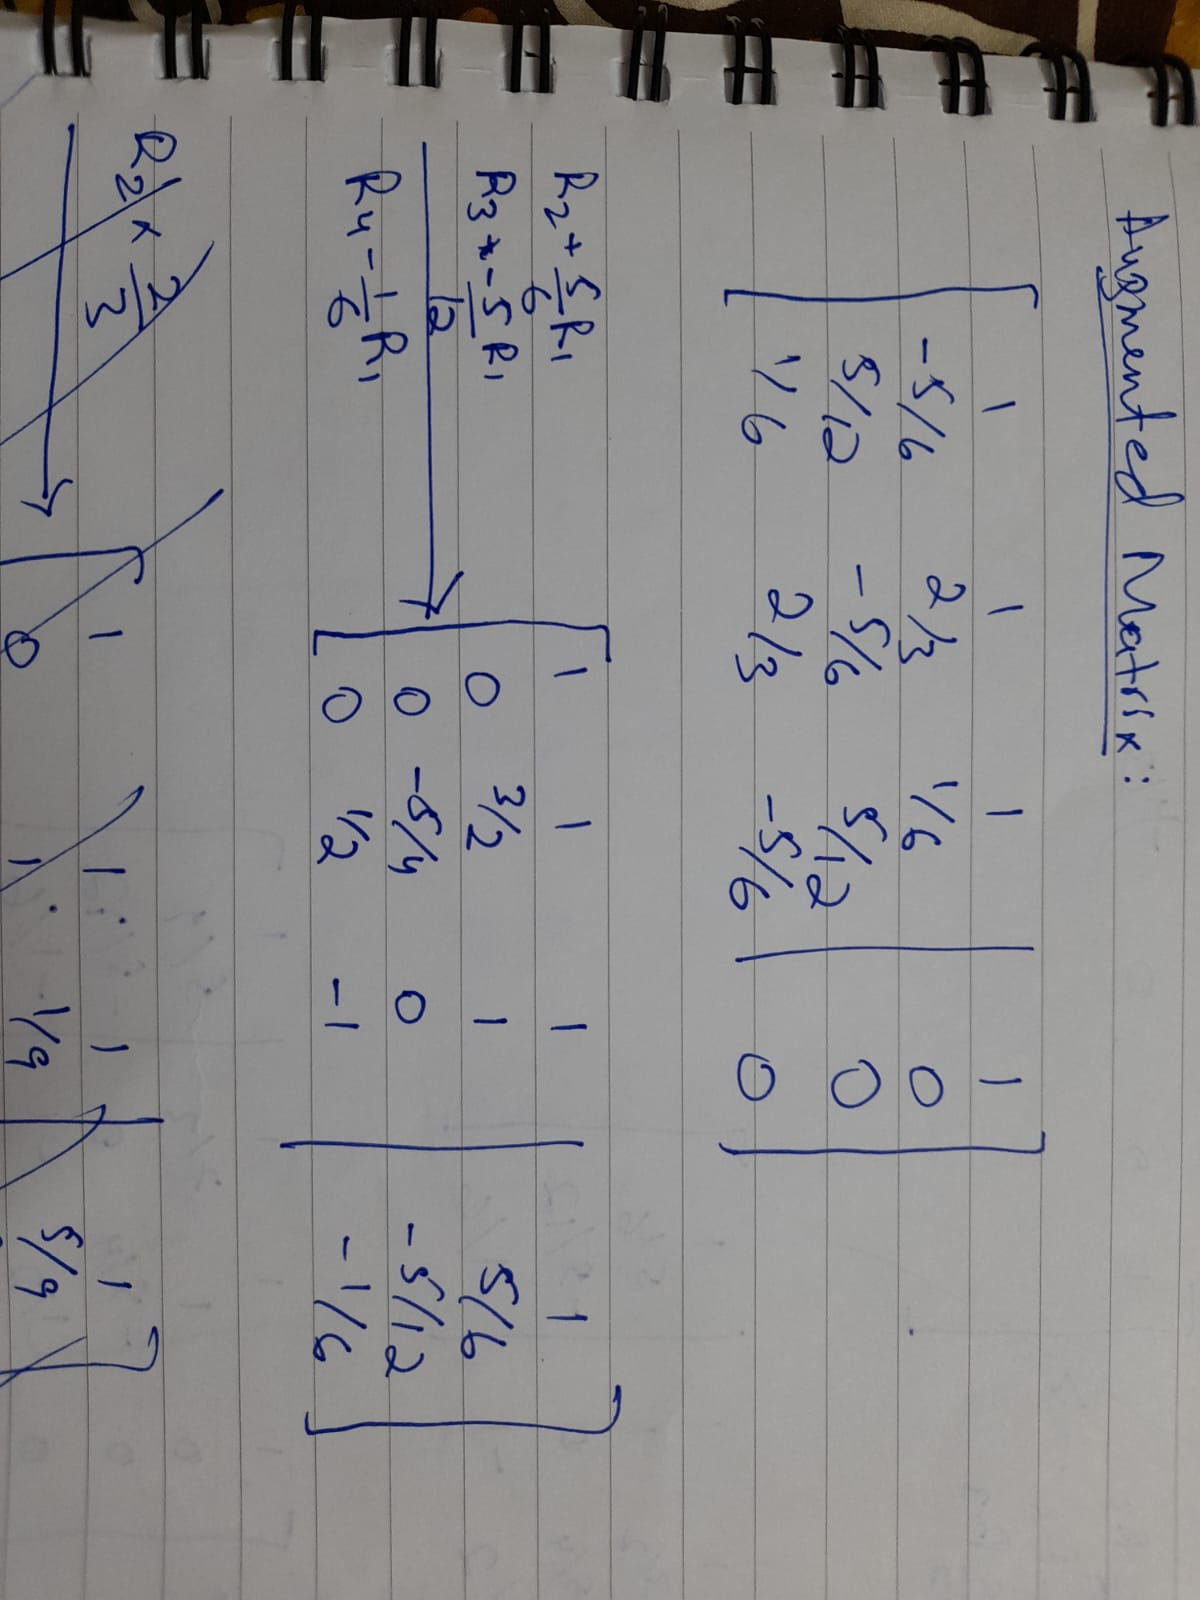 Augmented Matrix:
1 1 1 | 1
-5/6 2/3 1/6 | 0
5/12 -5/6 5/12 | 0
1/6 2/3 -5/6 | 0
R2 + 5/6 R1
R3 + -5/12 R1
R4 - 1/6 R1
1 1 1 | 1
0 3/2 1 | 5/6
0 -5/4 0 | -5/12
0 1/2 -1 | -1/6
R2 × 2/3
1 1 1 | 1
0 1 1/9 | 5/9